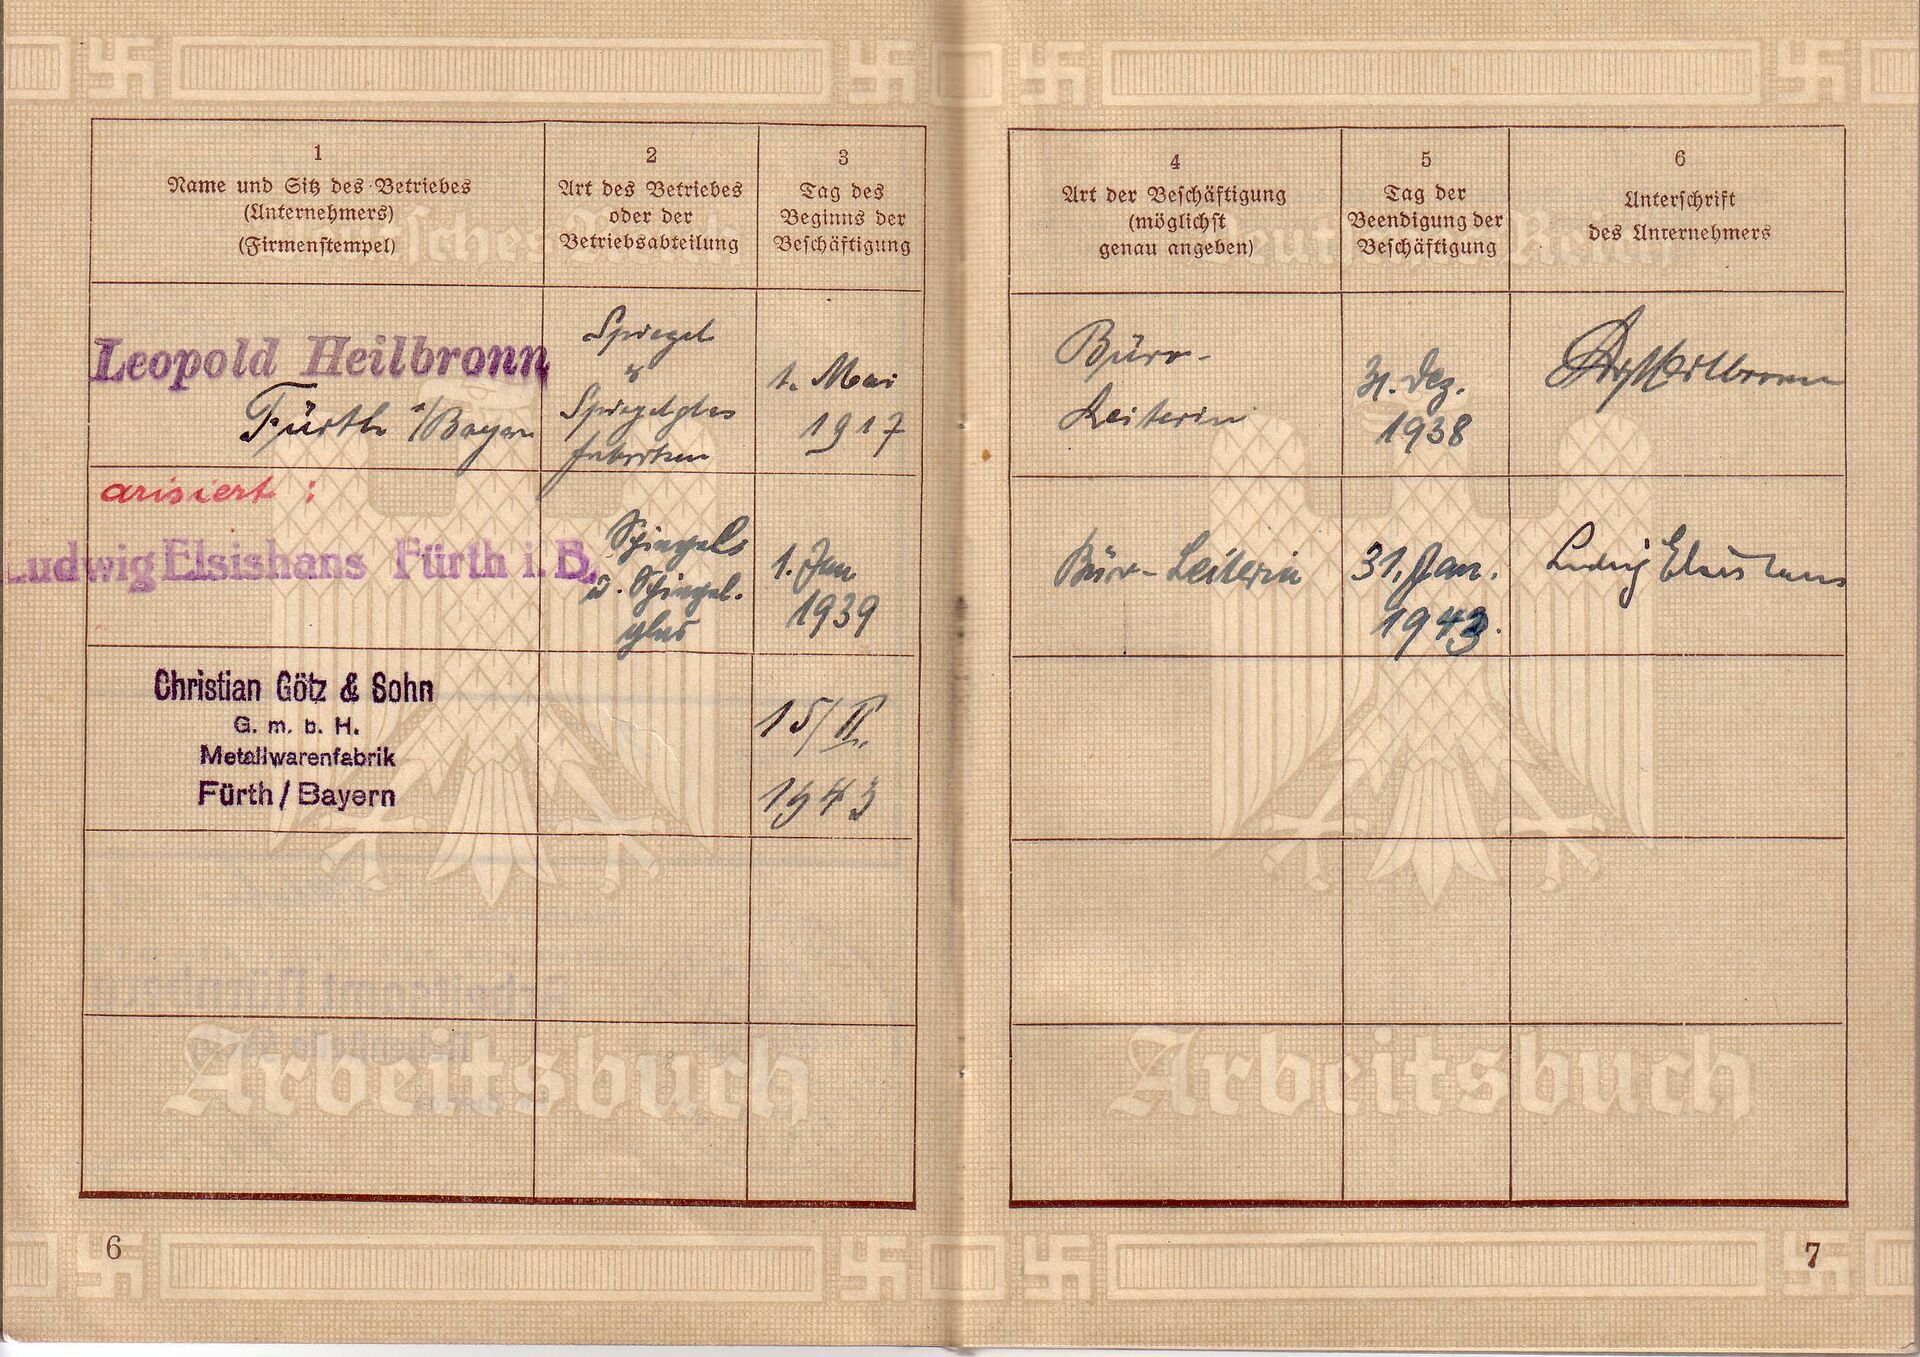 1
Name und Sitz des Betriebes
(Unternehmers)
(Firmenstempel)
2
Art des Betriebes
oder der
Betriebsabteilung
3
Tag des
Beginns der
Beschäftigung
Leopold Heilbronn
Fürth i/Bayern
Spiegel
u
Spiegelglas
fabriken
1. Mai
1917
arisiert :
Ludwig Elsishans Fürth i. B.
Spiegel
u. Spiegel-
glas
1. Jan.
1939
Christian Götz & Sohn
G. m. b. H.
Metallwarenfabrik
Fürth / Bayern
15/II.
1943
Arbeitsbuch
6
4
Art der Beschäftigung
(möglichst
genau angeben)
5
Tag der
Beendigung der
Beschäftigung
6
Unterschrift
des Unternehmers
Deutsches Reich
Büro-
Leiterin
31. Dez.
1938
Heilbronn
Büro-Leiterin
31. Jan.
1943.
Ludwig Elsishans
Arbeitsbuch
7